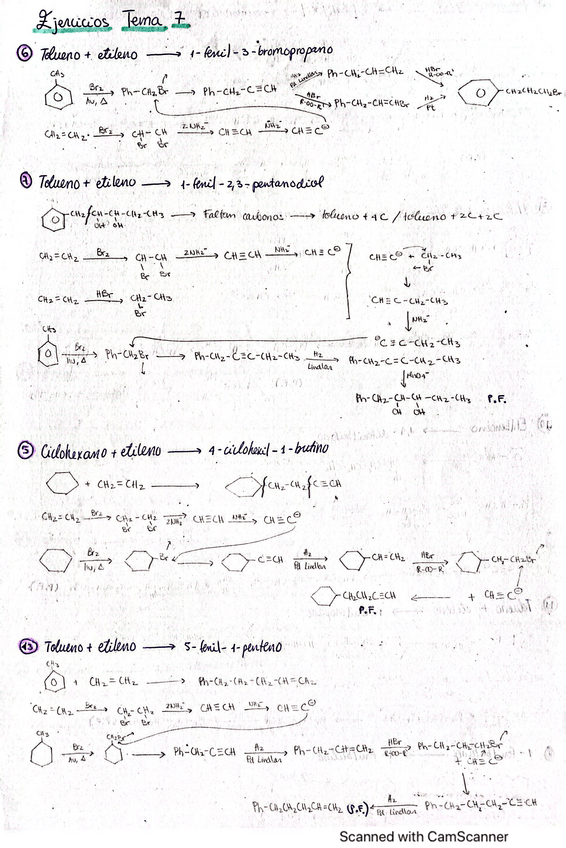 Ejercicios Tema 7
⑥ Tolueno + etileno ⟶ 1-fenil-3-bromopropano
CH3
Br2 hν, Δ ⟶ Ph-CH2Br ⟶ Ph-CH2-C≡CH
H2 Pd Lindlar Ph-CH2-CH=CH2 HBr R-OO-R'
HBr R-OO-R' Ph-CH2-CH=CHBr H2 Pt
-CH2CH2CH2Br
CH2=CH2 Br2 ⟶ CH-CH Br Br 2NH2⁻ ⟶ CH≡CH NH2⁻ ⟶ CH≡C⊖
⑦ Tolueno + etileno ⟶ 1-fenil-2,3-pentanodiol
-CH2 CH-CH-CH2-CH3 ⟶ Faltan carbonos ⟶ tolueno + 4C / tolueno + 2C + 2C
OH OH
CH2=CH2 Br2 ⟶ CH-CH 2NH2⁻ ⟶ CH≡CH NH2⁻ ⟶ CH≡C⊖
Br Br
CH≡C⊖ + CH2-CH3
Br
CH2=CH2 HBr ⟶ CH2-CH3
Br
CH≡C-CH2-CH3
NH2⁻
⊖C≡C-CH2-CH3
CH3
Br2 hν, Δ ⟶ Ph-CH2Br ⟶ Ph-CH2-C≡C-CH2-CH3 H2 Lindlar ⟶ Ph-CH2-C=C-CH2-CH3
MnO4⁻
Ph-CH2-CH-CH-CH2-CH3 P.F.
OH OH
⑤ Ciclohexano + etileno ⟶ 4-ciclohexil-1-butino
+ CH2=CH2 ⟶ CH2-CH2 C≡CH
CH2=CH2 Br2 ⟶ CH2-CH2 2NH2⁻ ⟶ CH≡CH NH2⁻ ⟶ CH≡C⊖
Br Br
Br2 hν, Δ ⟶ -Br ⟶ -C≡CH H2 Pd Lindlar ⟶ -CH=CH2 HBr R-OO-R' ⟶ -CH2-CH2Br
-CH2CH2C≡CH ⟵ + CH≡C⊖
P.F.
⑬ Tolueno + etileno ⟶ 5-fenil-1-penteno
CH3
+ CH2=CH2 ⟶ Ph-CH2-CH2-CH2-CH=CH2
CH2=CH2 Br2 ⟶ CH2-CH2 2NH2⁻ ⟶ CH≡CH NH2⁻ ⟶ CH≡C⊖
Br Br
CH3 CH2Br
Br2 hν, Δ ⟶ ⟶ Ph-CH2-C≡CH H2 Pd Lindlar ⟶ Ph-CH2-CH=CH2 HBr R-OO-R' ⟶ Ph-CH2-CH2-CH2Br
+ CH≡C⊖
Ph-CH2CH2CH2CH=CH2 (P.F.) ⟵ H2 Pd Lindlar Ph-CH2-CH2-CH2-C≡CH
Scanned with CamScanner